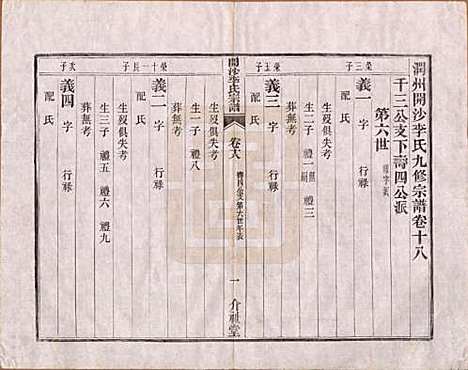 潤州開沙李氏九修宗譜卷十八
千三公支下壽四公派
第六世
榮三子
義一 字 行祿
配氏
生歿俱失考
葬無考
生二子 禮二 禮三
榮五子
義三 字 行祿
配氏
開沙李氏宗譜
卷十八
一
介祉堂
生歿俱失考
生一子 禮八
葬無考
榮十一長子
義二 字 行祿
配氏
生歿俱失考
生三子 禮五 禮六 禮九
葬無考
次子
義四 字 行祿
配氏